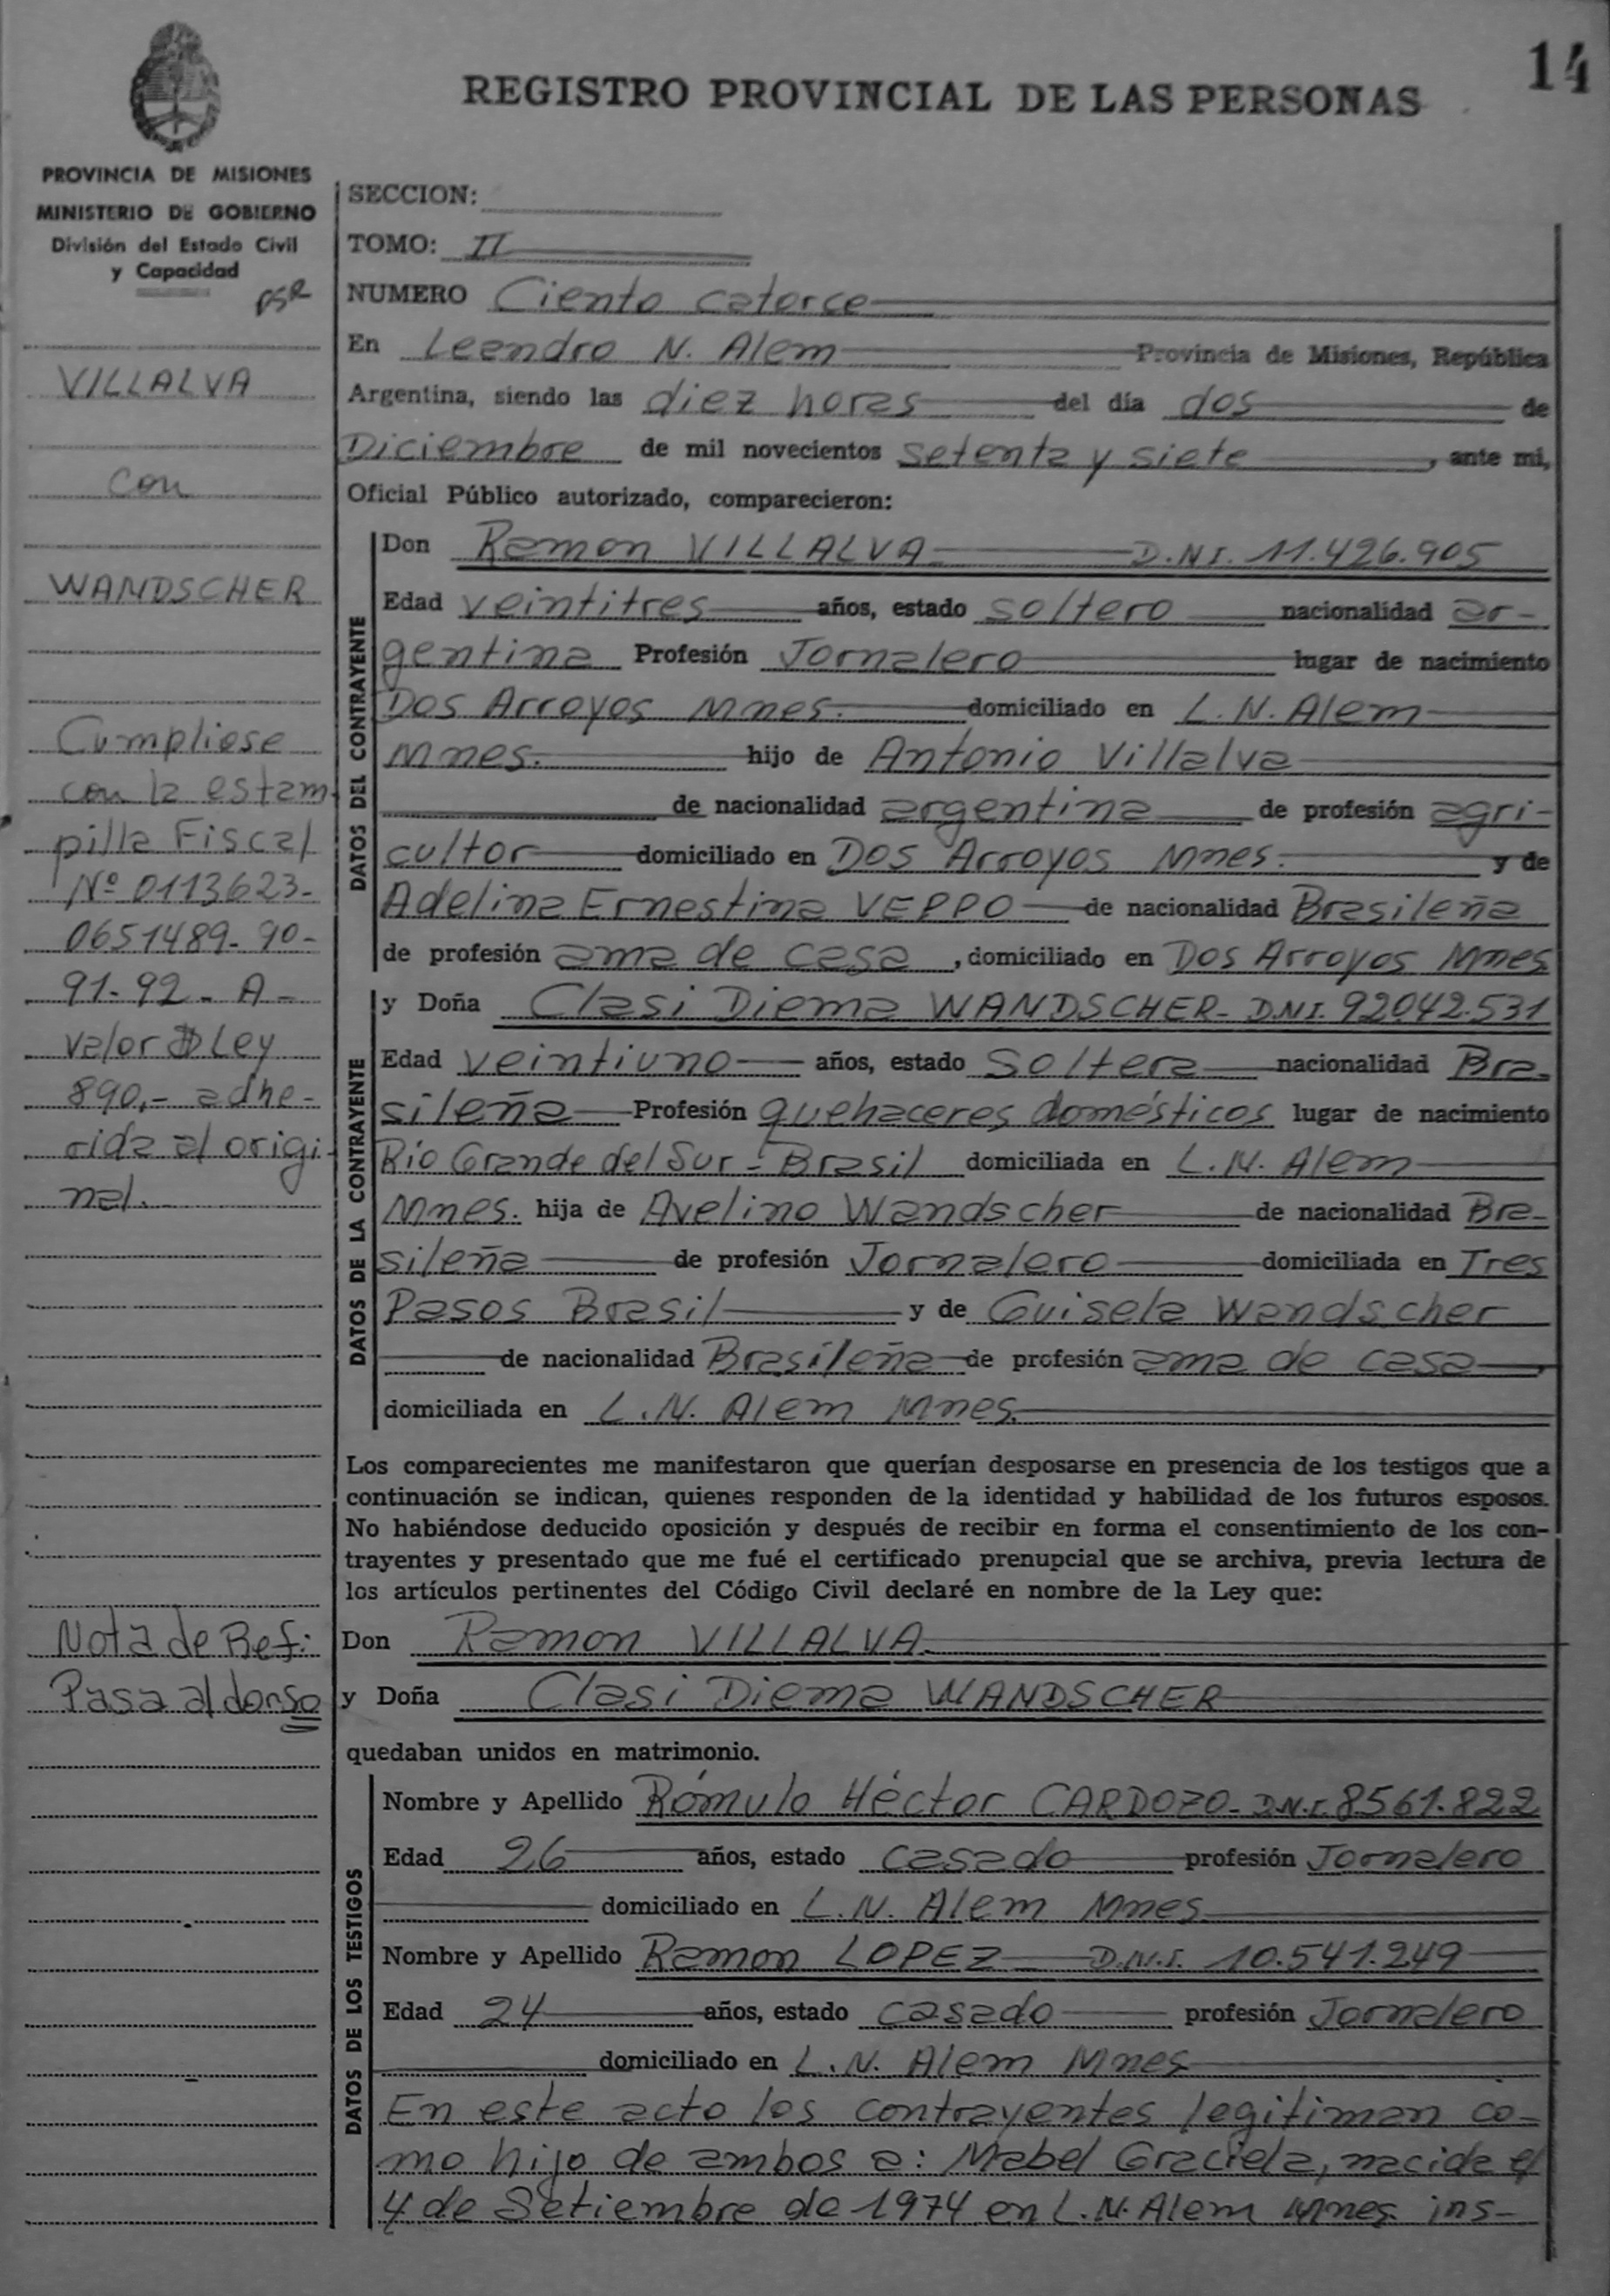 14
REGISTRO PROVINCIAL DE LAS PERSONAS
PROVINCIA DE MISIONES
MINISTERIO DE GOBIERNO
División del Estado Civil
y Capacidad
VILLALVA
con
WANDSCHER
Cumpliese
con la estam-
pilla Fiscal
Nº 0113623-
0651489-90-
91-92-A-
valor $ Ley
890,- adhe-
rida al origi-
nal.
Nota de Ref:
Pasa al dorso
SECCION:
TOMO: II
NUMERO Ciento catorce
En Leandro N. Alem Provincia de Misiones, República
Argentina, siendo las diez horas del día dos de
Diciembre de mil novecientos setenta y siete, ante mi,
Oficial Público autorizado, comparecieron:
DATOS DEL CONTRAYENTE
Don Ramon VILLALVA D.N.I. 11.426.905
Edad veintitres años, estado soltero nacionalidad ar-
gentina Profesión Jornalero lugar de nacimiento
Dos Arroyos Mnes. domiciliado en L.N. Alem
Mnes. hijo de Antonio Villalva
de nacionalidad argentina de profesión agri-
cultor domiciliado en Dos Arroyos Mnes. y de
Adelina Ernestina VEPPO de nacionalidad Brasileña
de profesión ama de casa, domiciliado en Dos Arroyos Mnes
DATOS DE LA CONTRAYENTE
y Doña Clasi Diema WANDSCHER- D.N.I. 92.042.531
Edad veintiuno años, estado Soltera nacionalidad Bra-
sileña Profesión quehaceres domésticos lugar de nacimiento
Río Grande del Sur - Brasil domiciliada en L.N. Alem
Mnes. hija de Avelino Wandscher de nacionalidad Bra-
sileña de profesión Jornalero domiciliada en Tres
Pasos Brasil y de Guisela Wandscher
de nacionalidad Brasileña de profesión ama de casa,
domiciliada en L.N. Alem Mnes.
Los comparecientes me manifestaron que querían desposarse en presencia de los testigos que a
continuación se indican, quienes responden de la identidad y habilidad de los futuros esposos.
No habiéndose deducido oposición y después de recibir en forma el consentimiento de los con-
trayentes y presentado que me fué el certificado prenupcial que se archiva, previa lectura de
los artículos pertinentes del Código Civil declaré en nombre de la Ley que:
Don Ramon VILLALVA
y Doña Clasi Diema WANDSCHER
quedaban unidos en matrimonio.
DATOS DE LOS TESTIGOS
Nombre y Apellido Rómulo Héctor CARDOZO- D.N.I. 8561.822
Edad 26 años, estado casado profesión Jornalero
domiciliado en L.N. Alem Mnes
Nombre y Apellido Ramon LOPEZ D.N.I. 10.541.249
Edad 24 años, estado casado profesión Jornalero
domiciliado en L.N. Alem Mnes
En este acto los contrayentes legitiman co-
mo hijo de ambos a: Mabel Graciela, nacida el
4 de Setiembre de 1974 en L.N. Alem Mnes. ins-